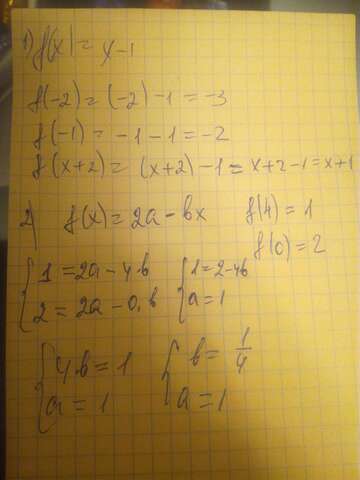 1) f(x) = x-1
f(-2) = (-2) - 1 = -3
f(-1) = -1 - 1 = -2
f(x+2) = (x+2) - 1 = x+2-1 = x+1
2) f(x) = 2a - bx f(4) = 1
f(0) = 2
{1 = 2a - 4b {1 = 2-4b
{2 = 2a - 0.b {a = 1
{4b = 1 {b = 1/4
{a = 1 {a = 1